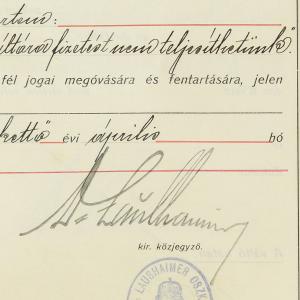 rtem:
éltára fizetést nem teljesíthetünk".
fél jogai megóvására és fentartására, jelen
kettő évi április hó
Dr Laushaimer
kir. közjegyző.
LAUSHAIMER OSZK